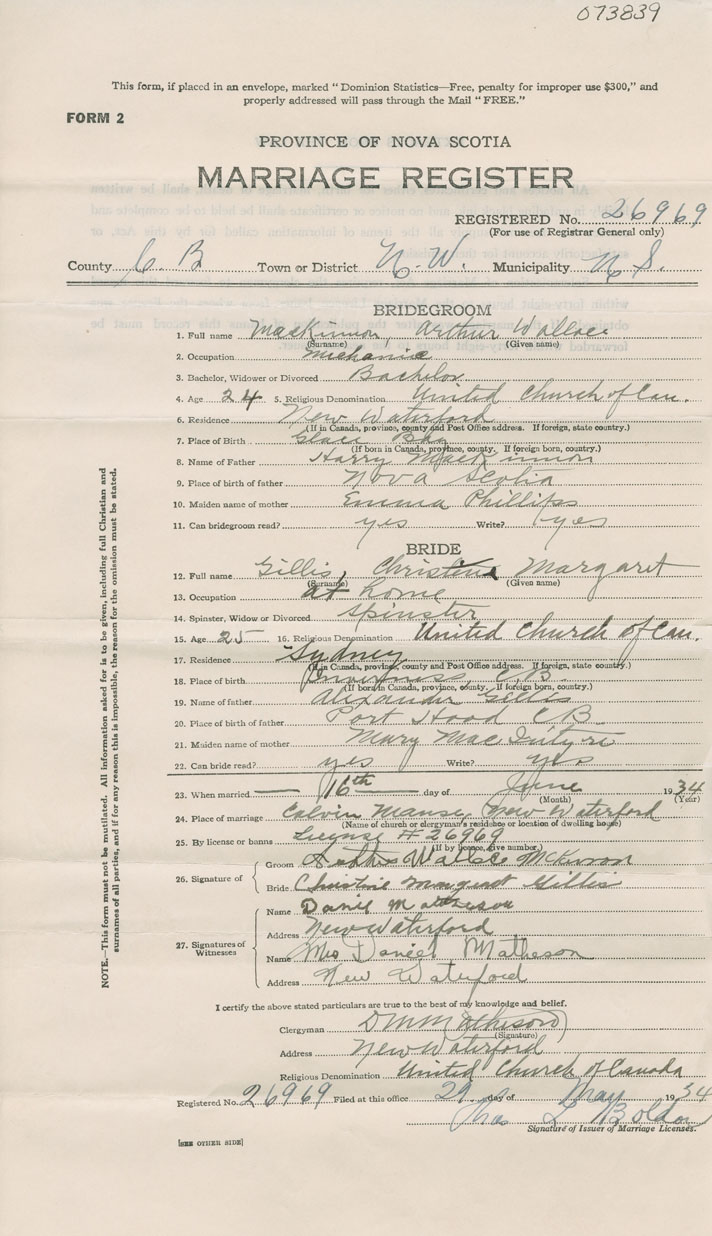 073839
This form, if placed in an envelope, marked "Dominion Statistics—Free, penalty for improper use $300," and
properly addressed will pass through the Mail "FREE."
FORM 2
PROVINCE OF NOVA SCOTIA
MARRIAGE REGISTER
REGISTERED No. 26969
(For use of Registrar General only)
County C. B Town or District N. W. Municipality N S.
BRIDEGROOM
1. Full name MacKinnon, Arthur Wallace
(Surname) (Given name)
2. Occupation mechanic
3. Bachelor, Widower or Divorced Bachelor
4. Age 24 5. Religious Denomination United Church of Can.
6. Residence New Waterford
(If in Canada, province, county and Post Office address. If foreign, state country.)
7. Place of Birth Glace Bay
(If born in Canada, province, county. If foreign born, country.)
8. Name of Father Harry MacKinnon
9. Place of birth of father Nova Scotia
10. Maiden name of mother Emma Phillips
11. Can bridegroom read? yes Write? yes
BRIDE
12. Full name Gillis, Christina Margaret
(Surname) (Given name)
13. Occupation at home
14. Spinster, Widow or Divorced spinster
15. Age 25 16. Religious Denomination United Church of Can.
17. Residence Sydney
(If in Canada, province, county and Post Office address. If foreign, state country.)
18. Place of birth C.B.
(If born in Canada, province, county. If foreign born, country.)
19. Name of father Alexander Gillis
20. Place of birth of father Port Hood CB
21. Maiden name of mother Mary MacIntyre
22. Can bride read? yes Write? yes
23. When married 16th day of June 1934
(Month) (Year)
24. Place of marriage Calvin Manse, New Waterford
(Name of church or clergyman's residence or location of dwelling house)
25. By license or banns License # 26969
(If by licence, give number.)
26. Signature of
Groom Arthur Wallace McKinnon
Bride Christine Margaret Gillis
27. Signatures of Witnesses
Name Daniel Matheson
Address New Waterford
Name Mrs Daniel Matheson
Address New Waterford
I certify the above stated particulars are true to the best of my knowledge and belief.
Clergyman D M Mathieson
(Signature)
Address New Waterford
Religious Denomination United Church of Canada
Registered No. 26969 Filed at this office 29 day of May 1934
Chas L Boldon
Signature of Issuer of Marriage Licenses.
[SEE OTHER SIDE]
NOTE.—This form must not be mutilated. All information asked for is to be given, including full Christian and
surnames of all parties, and if for any reason this is impossible, the reason for the omission must be stated.